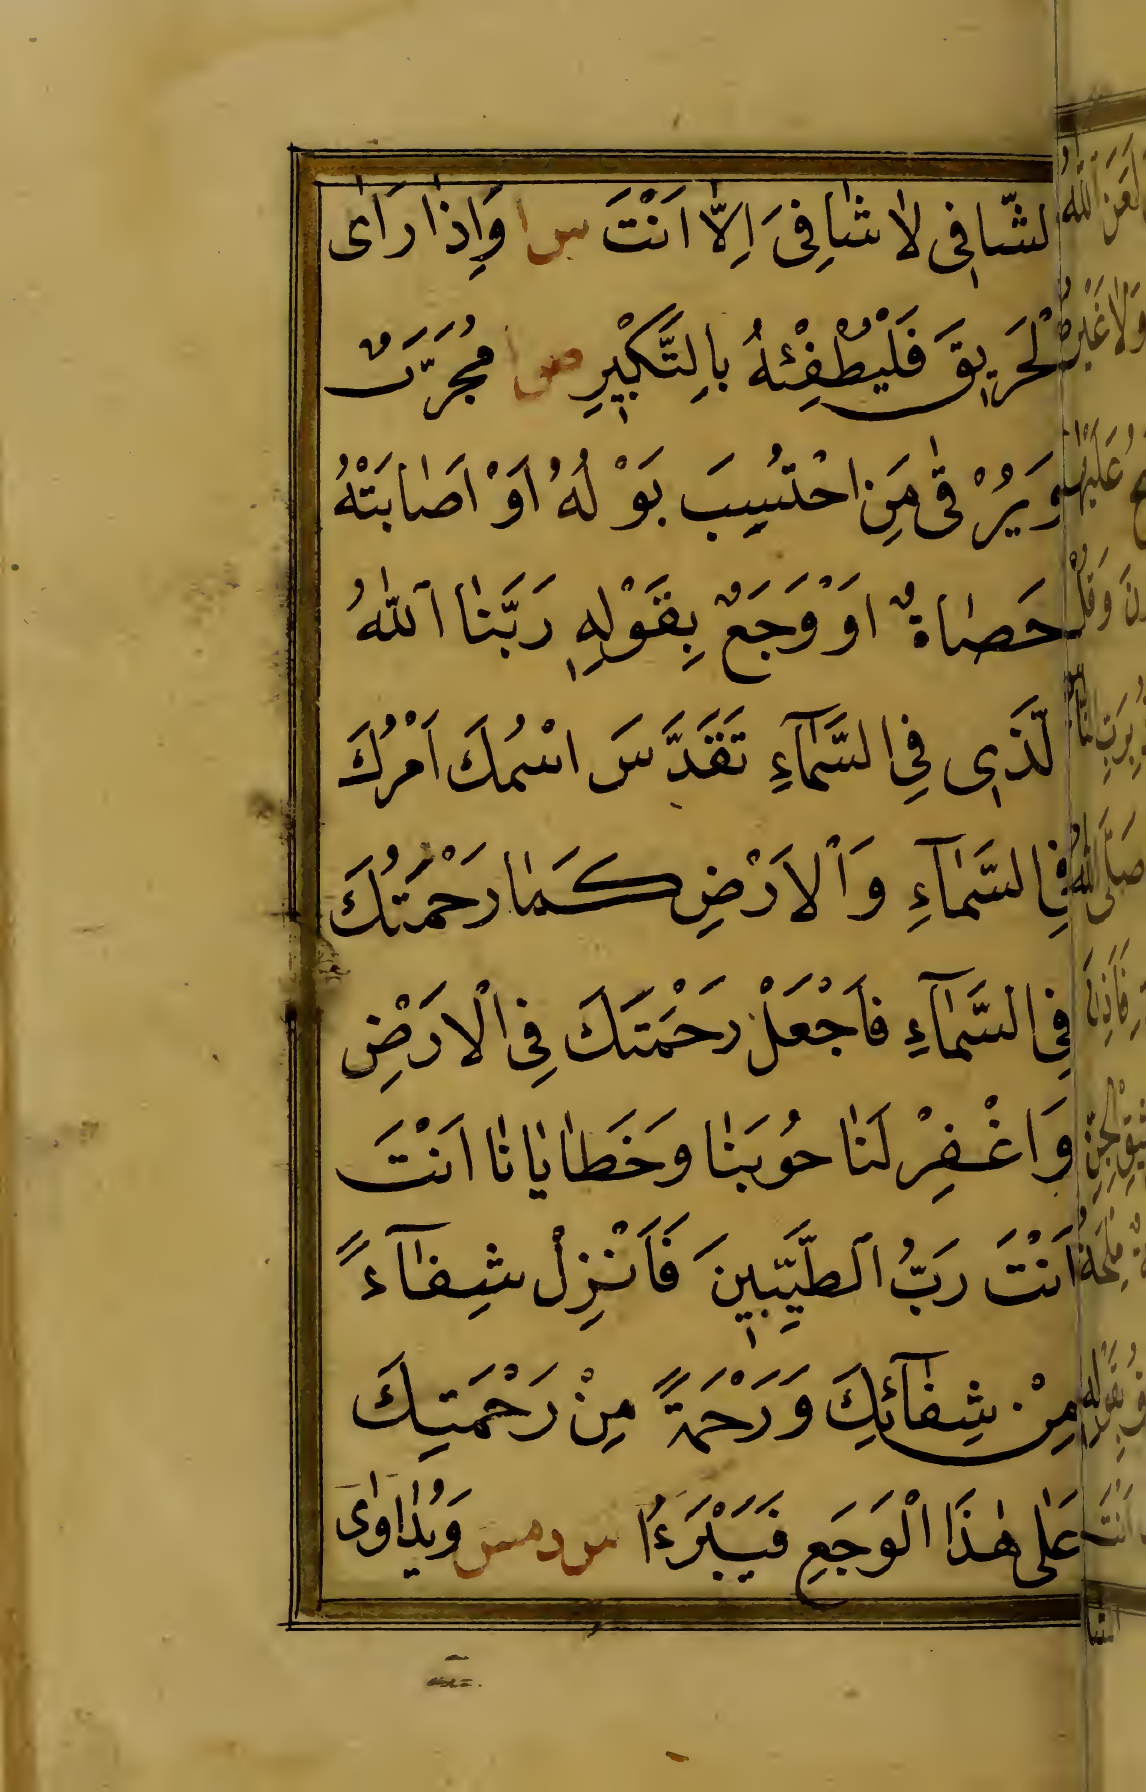 الشَّافِى لَا شَافِىَ اِلَّا اَنْتَ س ا وَاِذَا رَاَى
الْحَرِيقَ فَلْيُطْفِئْهُ بِالتَّكْبِيرِ ص ا مُجَرَّبٌ
وَيُرْقٰى مَنِ احْتُسِبَ بَوْلُهُ اَوْ اَصَابَتْهُ
حَصَاةٌ اَوْ وَجَعٌ بِقَوْلِهِ رَبَّنَا اللّٰهُ
الَّذِى فِى السَّمَآءِ تَقَدَّسَ اسْمُكَ اَمْرُكَ
فِى السَّمَآءِ وَالْاَرْضِ كَمَا رَحْمَتُكَ
فِى السَّمَآءِ فَاجْعَلْ رَحْمَتَكَ فِى الْاَرْضِ
وَاغْفِرْ لَنَا حُوبَنَا وَخَطَايَانَا اَنْتَ
اَنْتَ رَبُّ الطَّيِّبِينَ فَاَنْزِلْ شِفَآءً
مِنْ شِفَآئِكَ وَرَحْمَةً مِنْ رَحْمَتِكَ
عَلٰى هٰذَا الْوَجَعِ فَيَبْرَءُ س د مس وَيُدَاوٰى